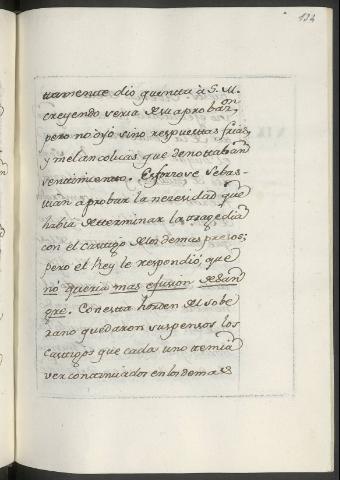 134
tamente dio quenta à S. M.
creyendo seria de su aprobaz.on
pero no oyó sino respuestas frias,
y melancolicas que denotaban
sentimiento. Esforzose Sebas-
tian à probar la necesidad que
habia de terminar la tragedia
con el castigo de los demas presos;
pero el Rey le respondió, que
no queria mas efusion de San
gre. Con esta horden del sobe
rano quedaron suspensos los
Castigos que cada uno temia
ver continuados en los demas